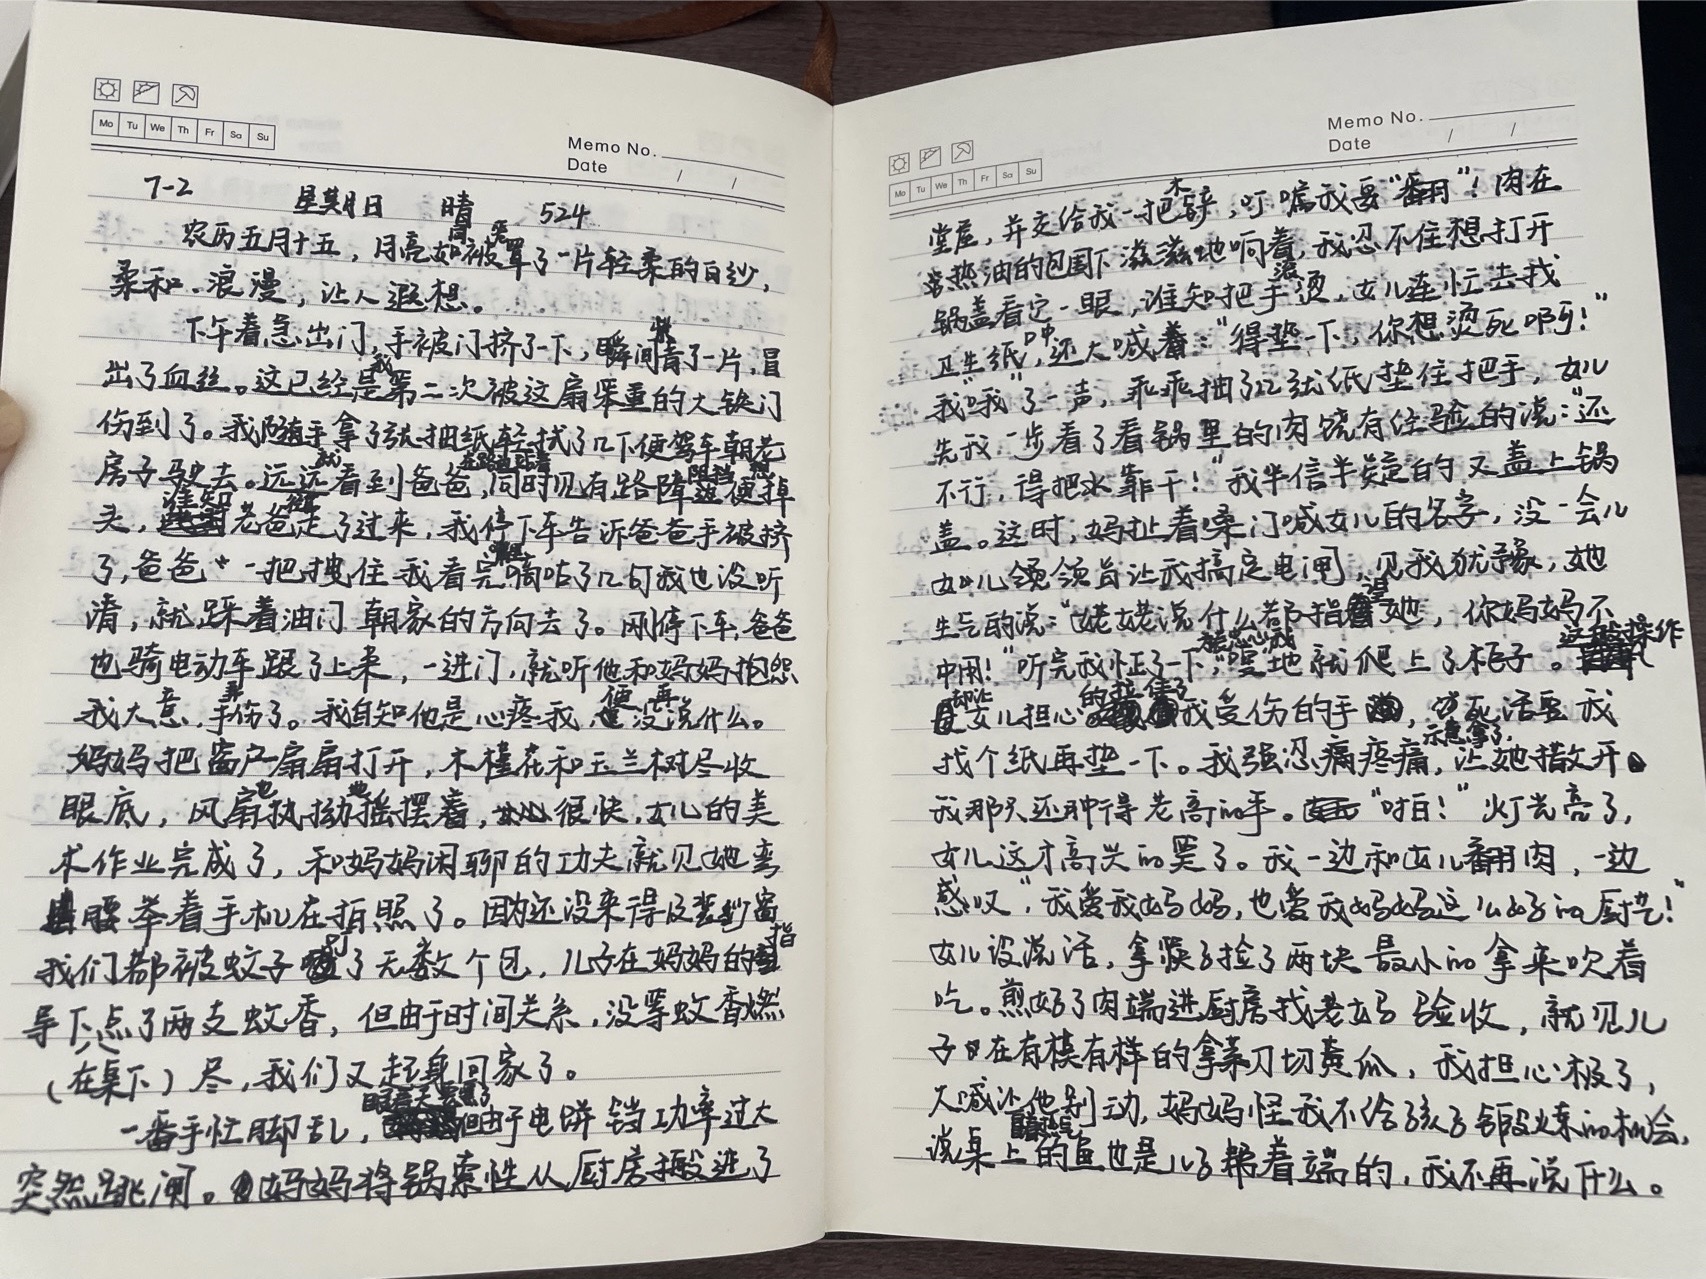 Mo Tu We Th Fr Sa Su
Memo No.
Date / /
7-2 星期日 晴 524
农历五月十五，月亮如同被罩了一片轻柔的白纱，
柔和、浪漫，让人遐想。
下午着急出门，手被门挤了一下，瞬间青了一片，冒
出了血丝。这已经是我第二次被这扇笨重的大铁门
伤到了。我随手拿了张抽纸轻拭了几下便驾车朝老
房子驶去。远远就看到爸爸，同时见有路障阻挡便想掉
头，谁知老爸走了过来，我停下车告诉爸爸手被挤
了，爸爸一把拽住我看完嘀咕了几句我也没听
清，就踩着油门朝家的方向去了。刚停下车，爸爸
也骑电动车跟了上来，一进门，就听他和妈妈抱怨
我大意，弄伤了手。我自知他是心疼我，便再没说什么。
妈妈把窗户扇扇打开，木槿花和玉兰树尽收
眼底，风扇也执拗地摇摆着，很快，女儿的美
术作业完成了，和妈妈闲聊的功夫就见她弯
腰举着手机在拍照了。因为还没来得及装纱窗
我们都被蚊子叮了无数个包，儿子在妈妈的指
导下点了两支蚊香，但由于时间关系，没等蚊香燃
（在桌下）尽，我们又起身回家了。
一番手忙脚乱，眼看天要黑了但由于电饼铛功率过大
突然跳闸。妈妈将锅索性从厨房搬进了
Mo Tu We Th Fr Sa Su
Memo No.
Date / /
堂屋，并交给我一把木铲，叮嘱我要“翻”！肉在
热油的包围下滋滋地响着，我忍不住想打开
锅盖看它一眼，谁知把手滚烫，女儿连忙去找
卫生纸，口中还大喊着：“得垫一下，你想烫死啊！”
我“哦”了一声，乖乖抽了几张纸垫住把手，女儿
先我一步看了看锅里的肉饶有经验的说：“还
不行，得把水靠干！”我半信半疑的又盖上锅
盖。这时，妈扯着嗓门喊女儿的名字，没一会儿
女儿领旨让我搞定电闸，见我犹豫，她
生气的说：“姥姥说什么都指望她，你妈妈不
中用！”听完我怔了一下，“噔”地就爬上了柜子。这般操作
却让女儿担心的拉住了我受伤的手，寻死活要我
找个纸再垫一下。我强忍痛疼痛，示意拿了，让她撒开
我那只还肿得老高的手。“啪！”灯光亮了，
女儿这才高兴的笑了。我一边和女儿翻肉，一边
感叹“我爱我妈妈，也爱我妈妈这么好的厨艺！”
女儿没说话，拿筷子捡了两块最小的拿来吹着
吃。煎好了肉端进厨房找老妈验收，就见儿
子在有模有样的拿菜刀切黄瓜，我担心极了，
大喊让他别动，妈妈怪我不给孩子锻炼的机会，
说桌上的鱼也是儿子帮着端的，我不再说什么。